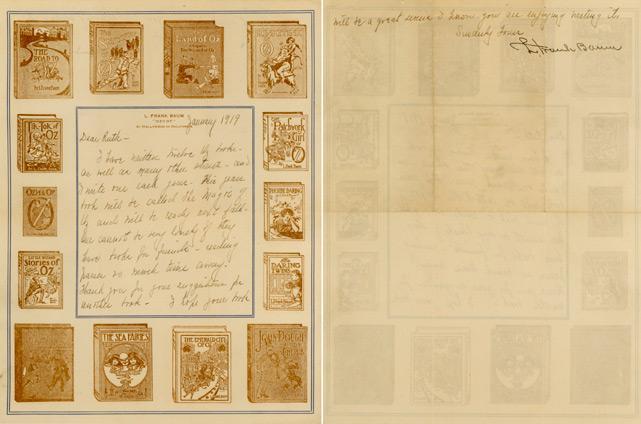 THE
ROAD TO
OZ
Land of Oz
L. FRANK BAUM
"OZCOT"
AT HOLLYWOOD IN CALIFORNIA
January 1919
Dear Ruth -
I have written twelve Oz books -
as well as many other stories - and
I write one each year. This years
book will be called the Magic of
Oz and will be ready next fall -
One cannot be very lonely if they
have books for friends - writing
passes so much time away.
Thank you for your suggestion for
another book - I hope your book
Tik Tok of
OZ
Patchwork
Girl
of OZ
PHOEBE DARING
LITTLE WIZARD
Stories of
OZ
The
DARING
TWINS
THE SEA FAIRIES
THE EMERALD CITY
OF OZ
JOHN DOUGH
and the
CHERUB
will be a great success I know you are enjoying writing it.
Sincerely Yours
L. Frank Baum